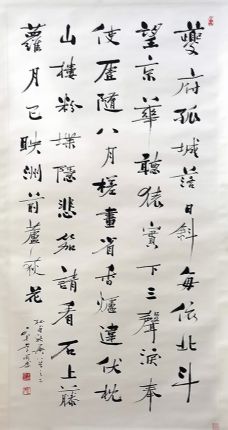 夔府孤城落日斜每依北斗
望京華聽猿實下三聲淚奉
使虛隨八月槎畫省香爐違伏枕
山樓粉堞隱悲笳請看石上藤
蘿月已映洲前蘆荻花